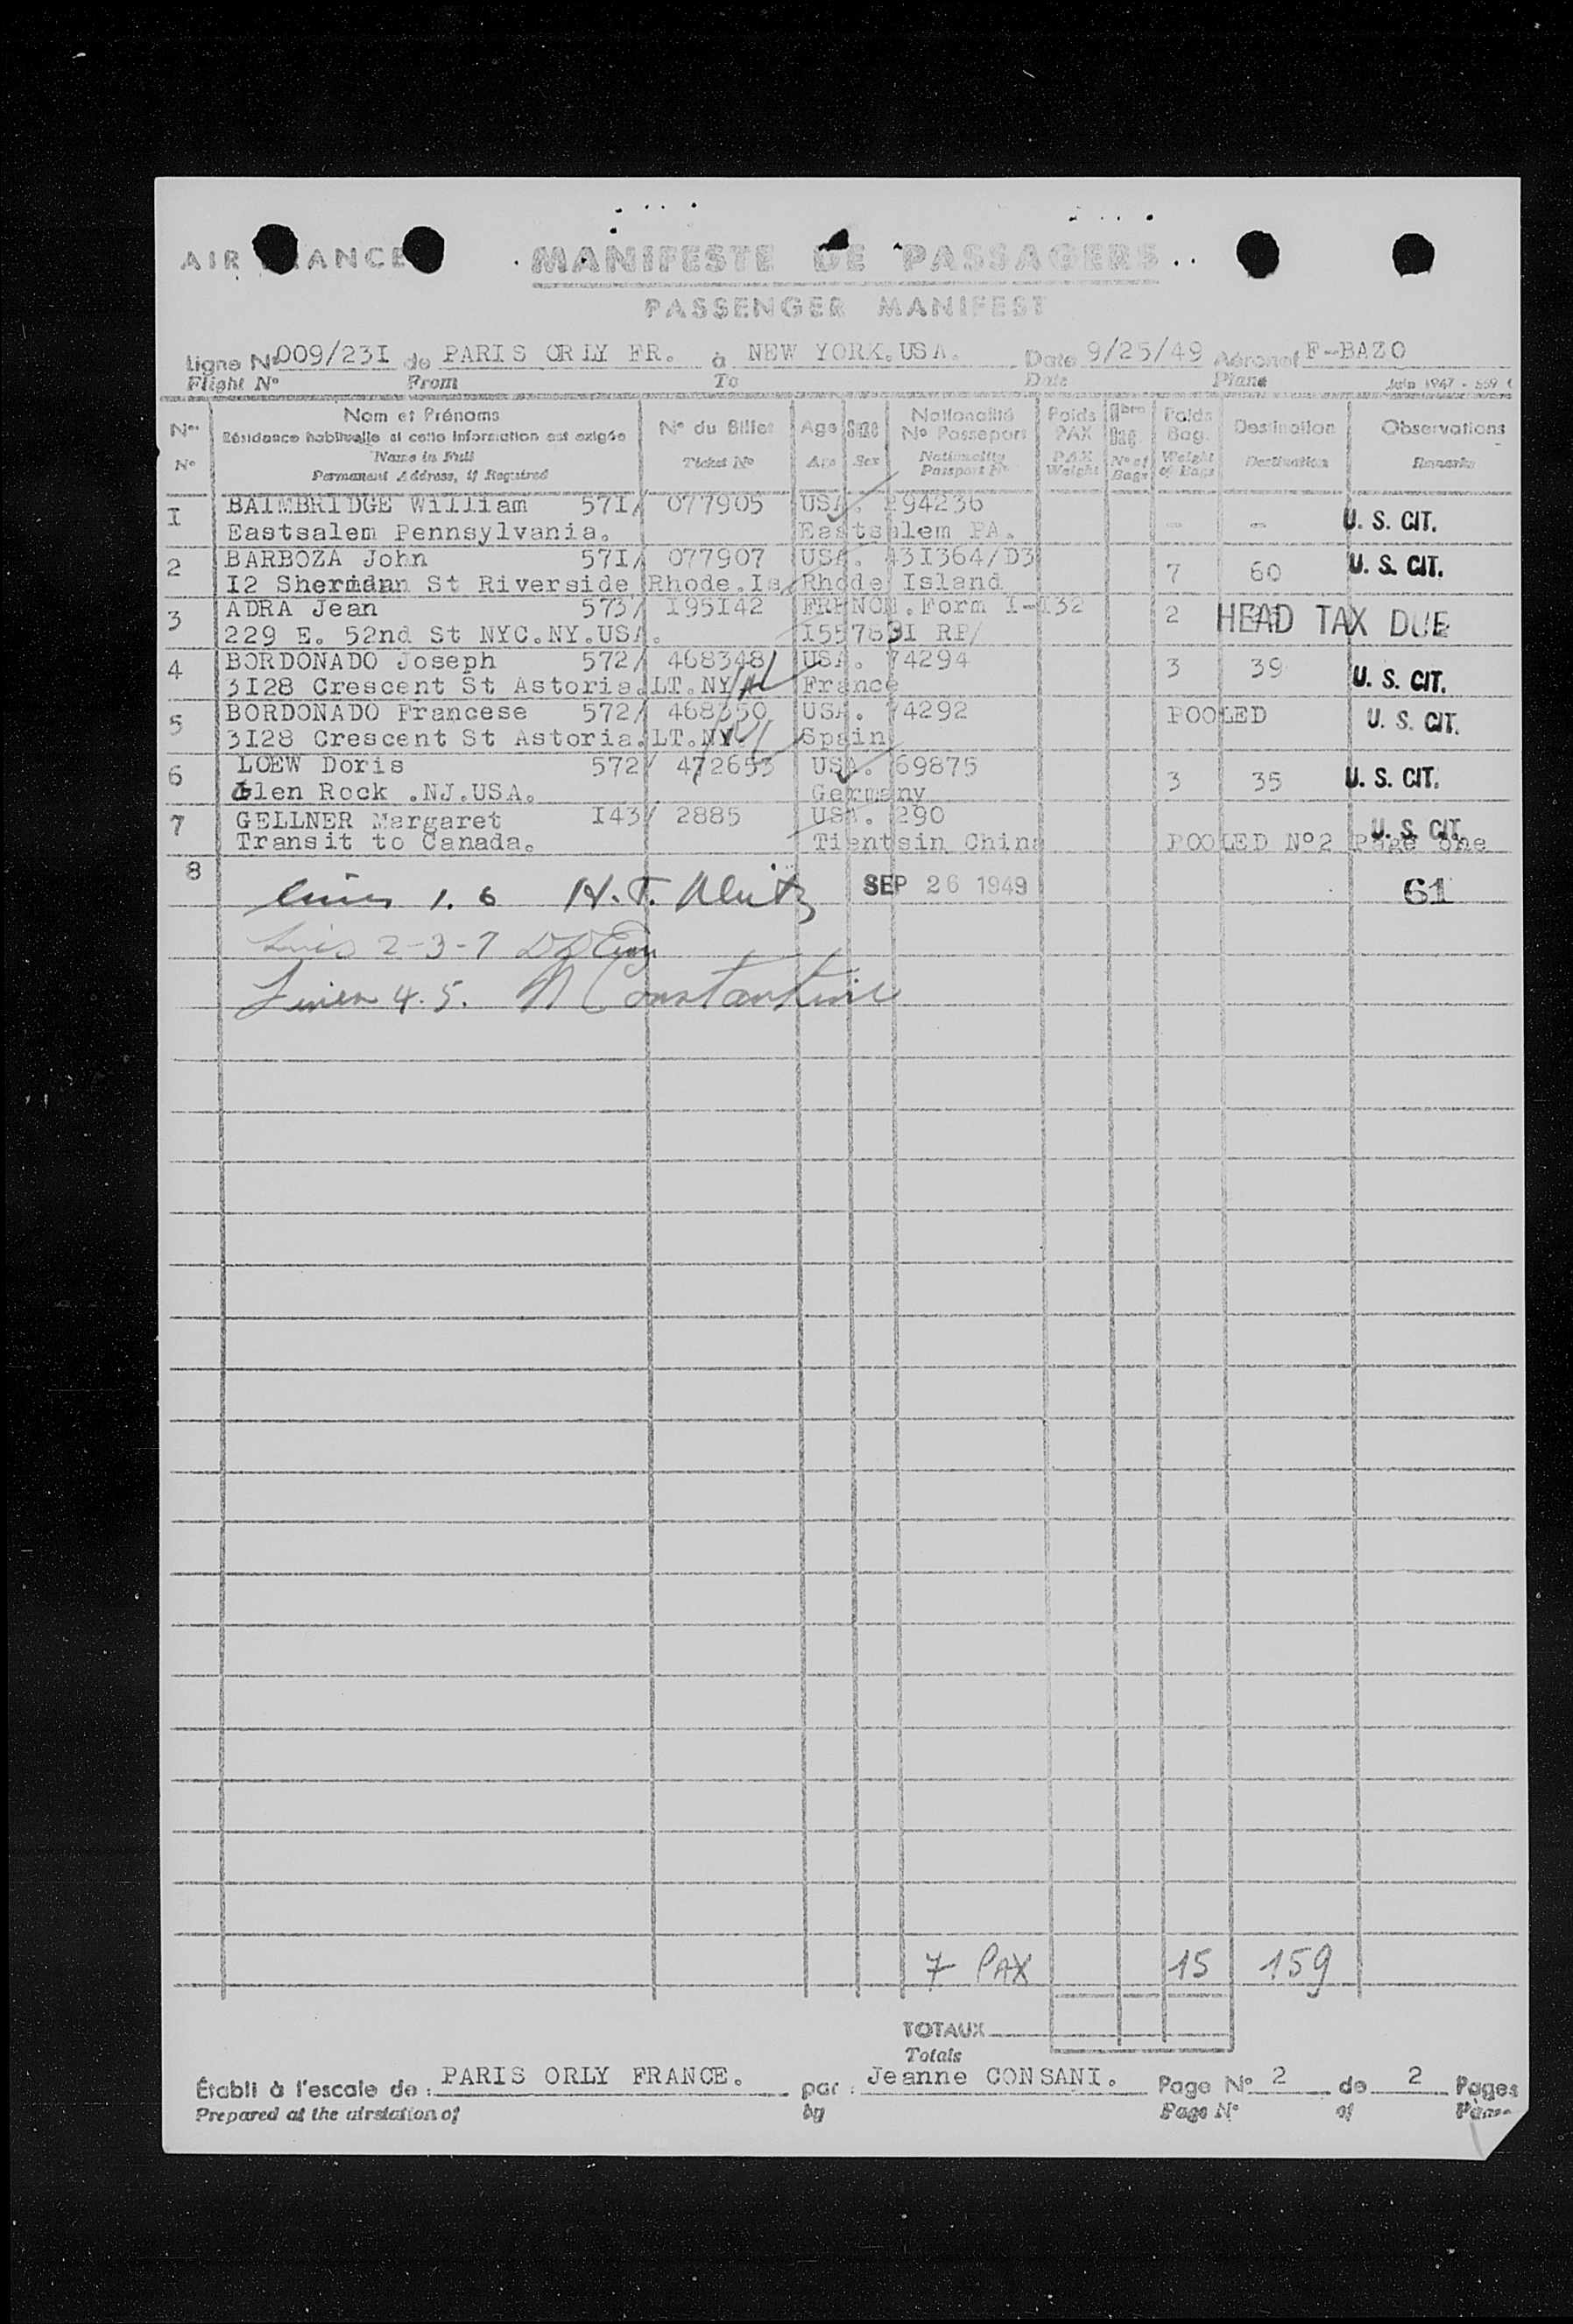 AIR FRANCE
MANIFESTE DE PASSAGERS
PASSENGER MANIFEST
Ligne N° 009/23I de PARIS ORLY FR. à NEW YORK.USA. Date 9/25/49 Aéronef F-BAZO
Flight N° From To Date Plane Juin 1947 -
N° Nom et Prénoms N° du Billet Age Sexe Nationalité Poids Nbre Poids Destination Observations
Résidance habituelle si cette information est exigée N° Passeport PAX Bag. Bag.
N° Name in Full Ticket N° Age Sex Nationality PAX N° of Weight Destination Remarks
Permanent Address, if Required Passport N° Weight Bags of Bags
I BAIMBRIDGE William 57I/ 077905 USA. 294236 - - U. S. CIT.
Eastsalem Pennsylvania. Eastsalem PA.
2 BARBOZA John 57I/ 077907 USA. 43I364/D3 7 60 U. S. CIT.
I2 Sheridan St Riverside Rhode.Is Rhode Island
3 ADRA Jean 573/ I95I42 FRENCH.Form I-I32 2 HEAD TAX DUE
229 E. 52nd St NYC.NY.USA. I55783I RP/
4 BORDONADO Joseph 572/ 468348 USA. 74294 3 39 U. S. CIT.
3I28 Crescent St Astoria.LT.NY France
5 BORDONADO Francese 572/ 468350 USA. 74292 POOLED U. S. CIT.
3I28 Crescent St Astoria.LT.NY. Spain
6 LOEW Doris 572/ 472653 USA. 69875 3 35 U. S. CIT.
Glen Rock .NJ.USA. Germany
7 GELLNER Margaret I43/ 2885 USA. 290 U. S. CIT.
Transit to Canada. Tientsin China POOLED N°2 Page one
8 Lines 1. 6 H.T. SEP 26 1949 61
Lines 2-3-7
Lines 4. 5. N Constantine
7 PAX 15 159
TOTAUX
Totals
Établi à l'escale de : PARIS ORLY FRANCE. par : Jeanne CONSANI. Page N° 2 de 2 Pages
Prepared at the airstation of by Page N° of Pages